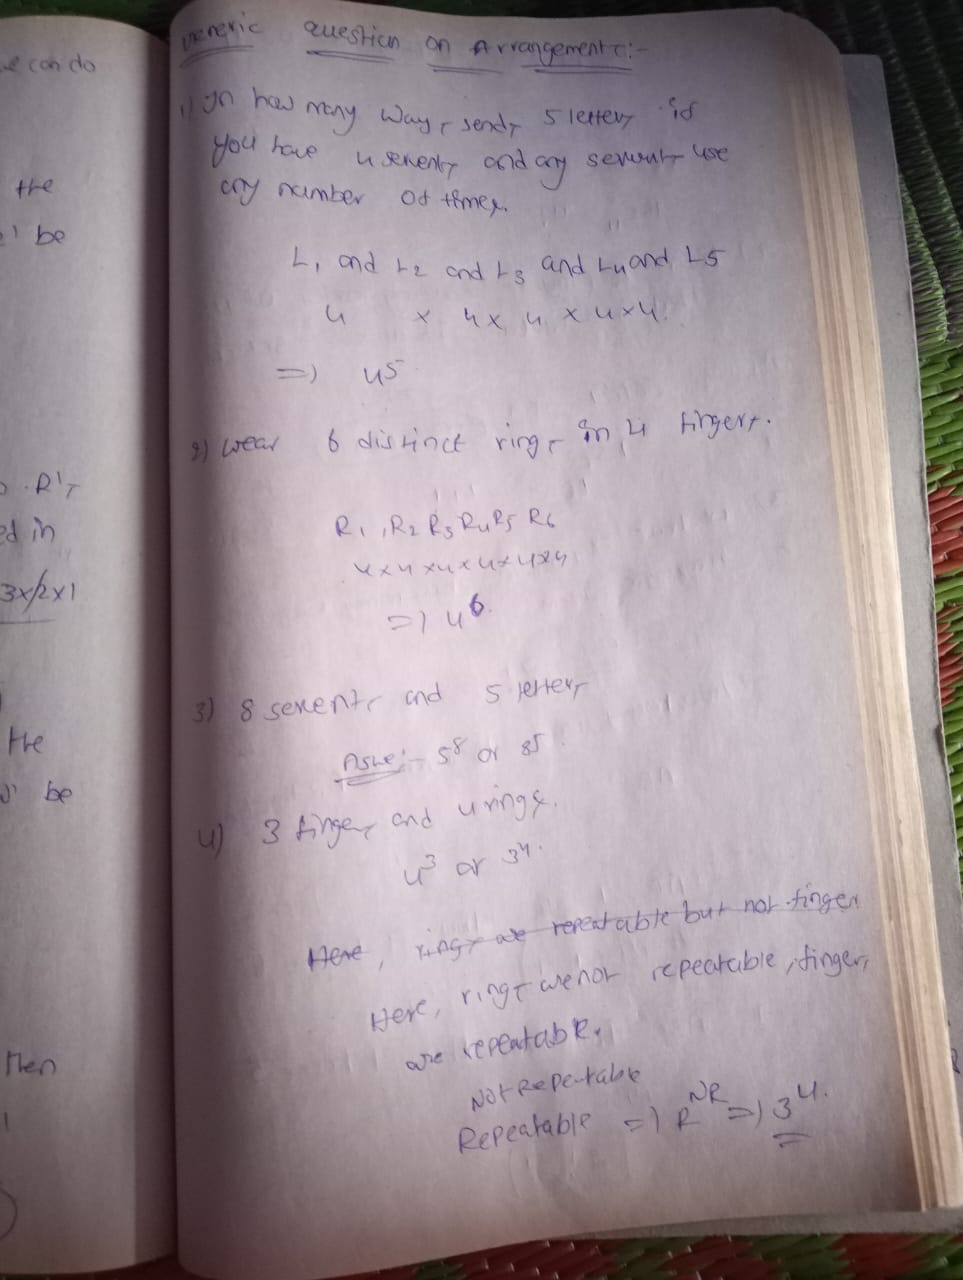 e can do
the
e' be
R's
ed in
3x/2x1
the
be
then
1
Generic question on Arrangements:-
1) In how many ways send 5 letters if
you have 4 servents and any servent use
any number of times.
L1 and L2 and L3 and L4 and L5
4 x 4x 4 x 4x4
=> 4^5
2) wear 6 distinct rings in 4 fingers.
R1, R2 R3 R4 R5 R6
4x4x4x4x4x4
=> 4^6.
3) 8 servents and 5 letters
5^8 or 8^5.
4) 3 fingers and 4 rings.
4^3 or 3^4.
Here, rings are repeatable but not finger
Here, rings are not repeatable, fingers
are repeatable.
Not Repeatable
Repeatable => R^NR => 3^4.